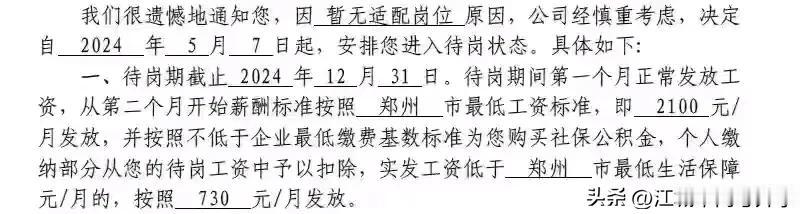 我们很遗憾地通知您，因 暂无适配岗位 原因，公司经慎重考虑，决定
自 2024 年 5 月 7 日起，安排您进入待岗状态。具体如下：
一、待岗期截止 2024 年 12 月 31 日。待岗期间第一个月正常发放工
资，从第二个月开始薪酬标准按照 郑州 市最低工资标准，即 2100 元/
月发放，并按照不低于企业最低缴费基数标准为您购买社保公积金，个人缴
纳部分从您的待岗工资中予以扣除，实发工资低于 郑州 市最低生活保障
元/月的，按照 730 元/月发放。
头条 @江